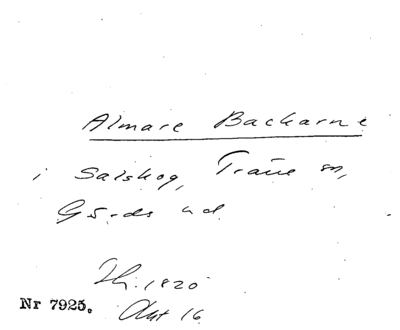 Almare Backarne
i Salskog, Träne sn,
Gärds hd.
Th. 1820
Nr 7925. Akt 16